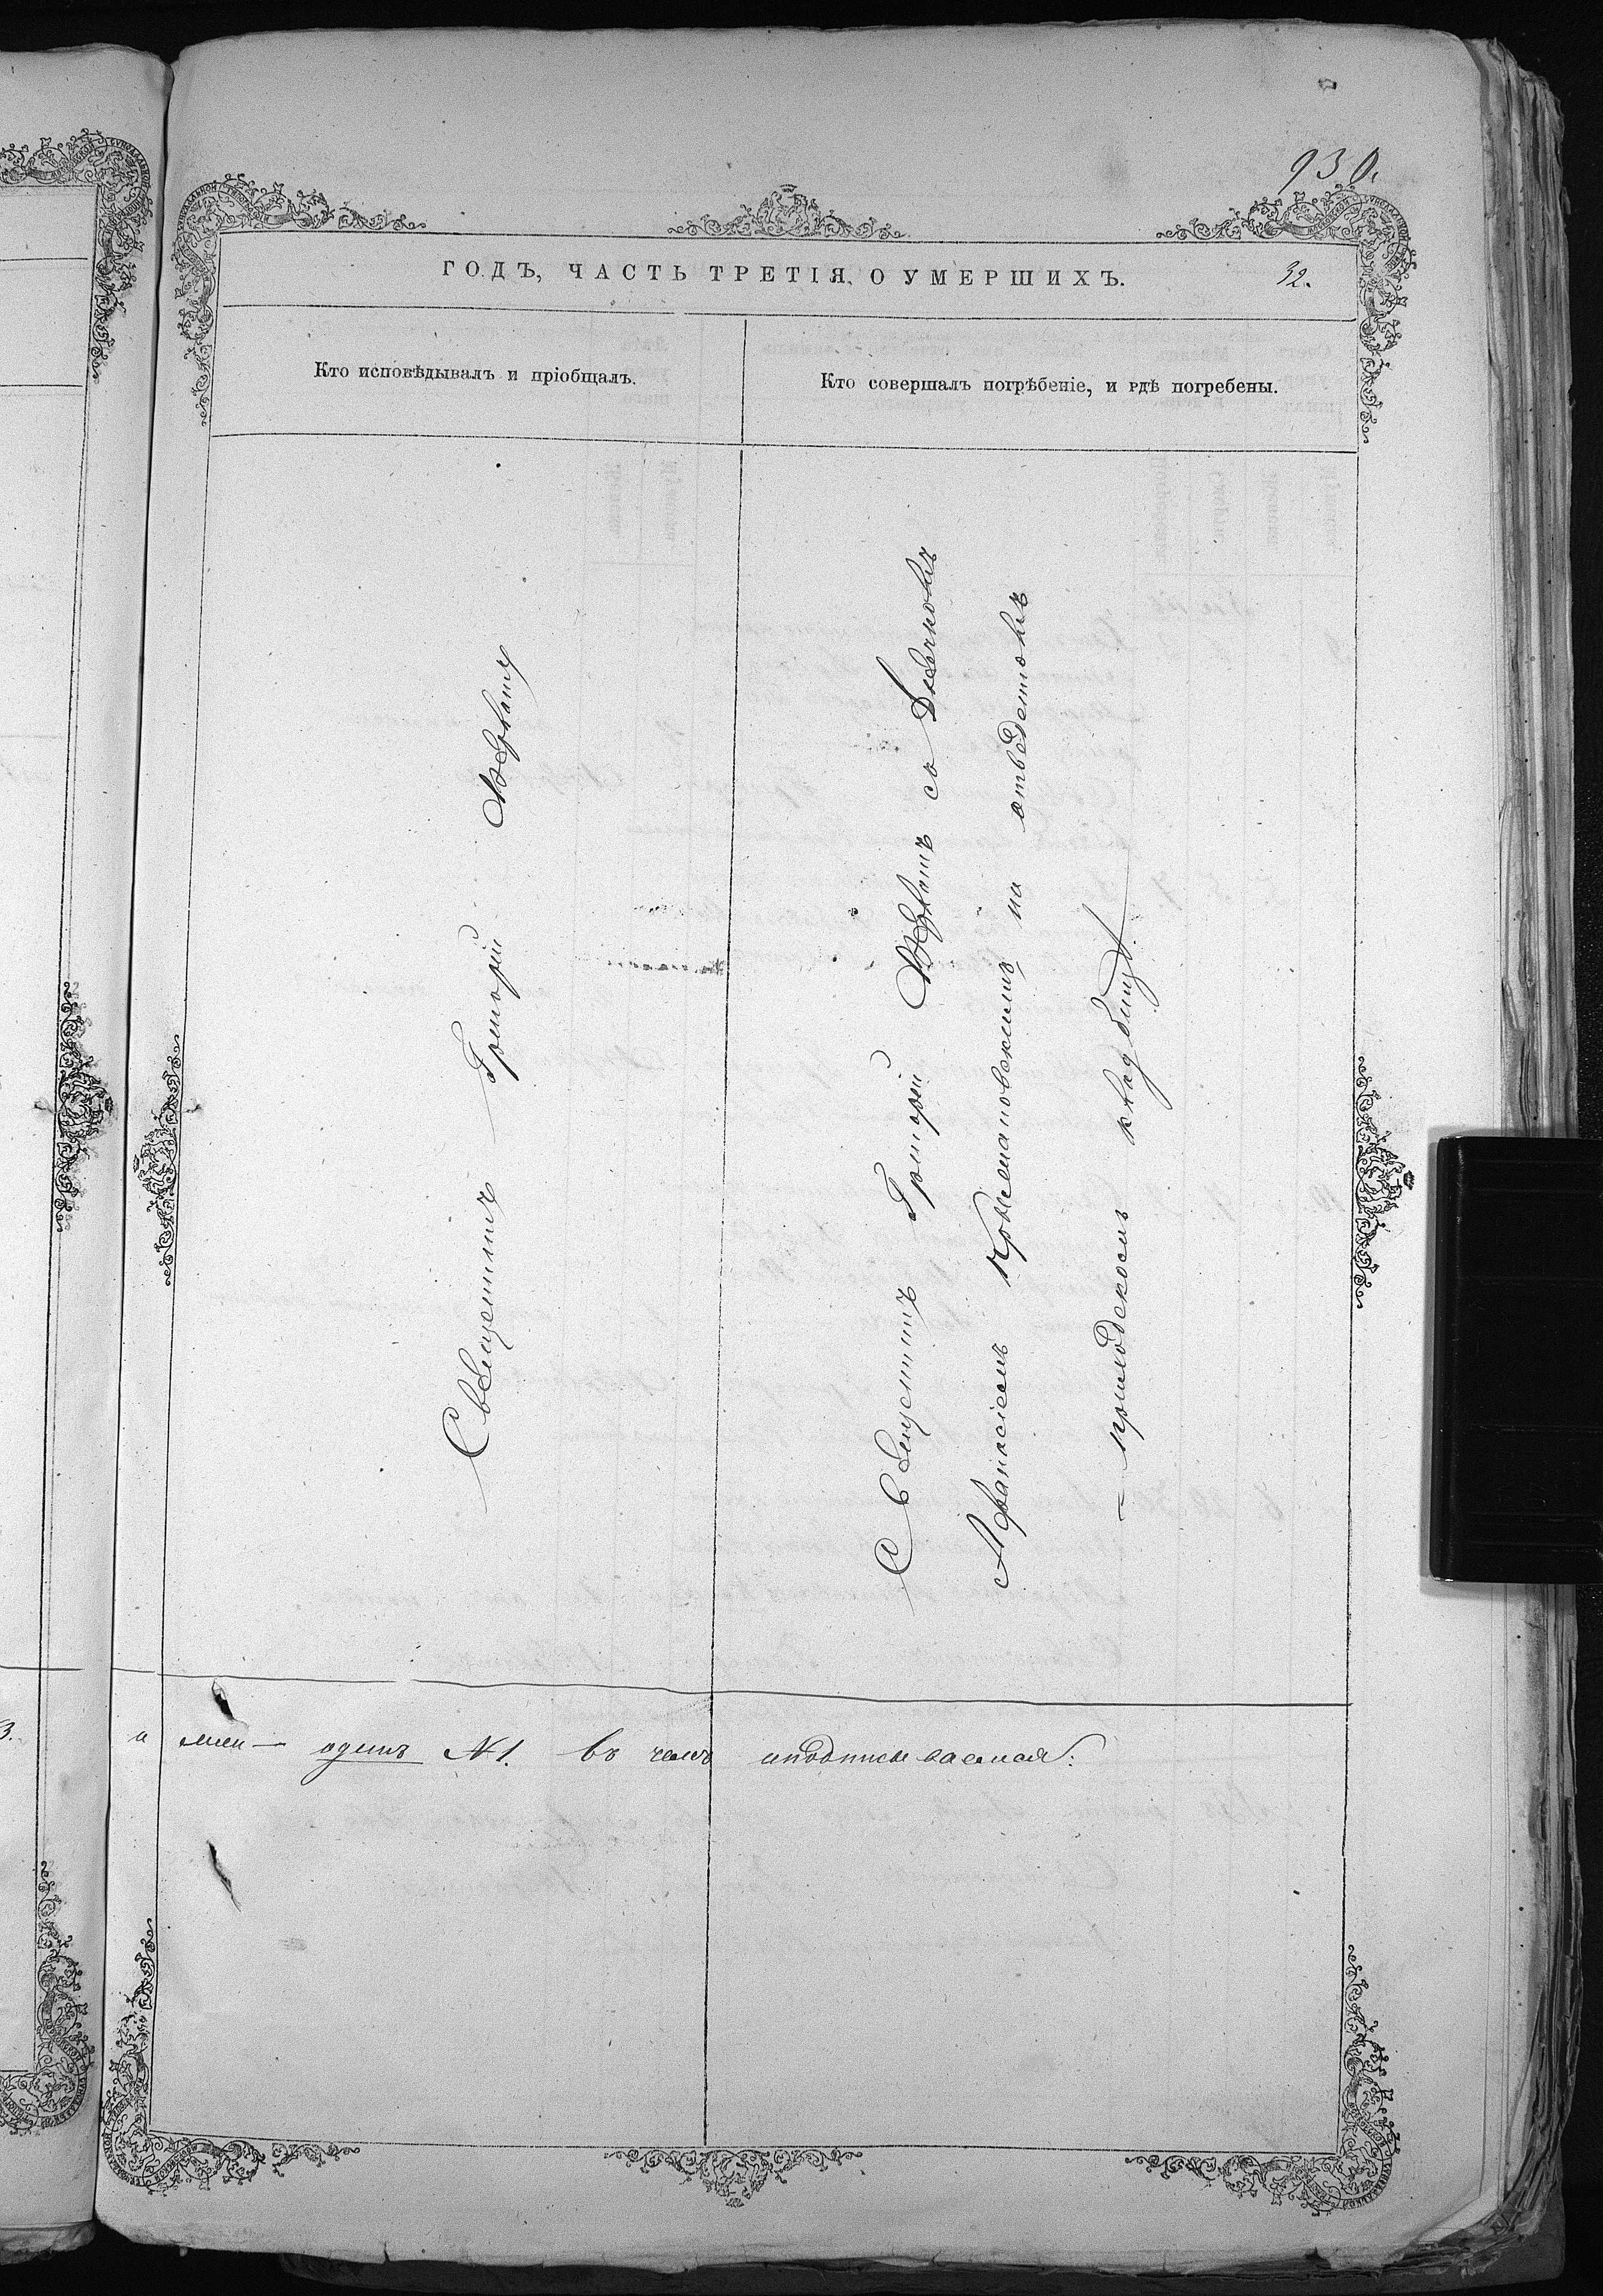 930.
ГОДЪ, ЧАСТЬ ТРЕТІЯ, О УМЕРШИХЪ.
32.
Кто исповѣдывалъ и пріобщалъ.
Кто совершалъ погрѣбеніе, и гдѣ погребены.
Священникъ Григорій
Священникъ Григорій съ Дьячкомъ
Афанасіемъ Крыжановскимъ на отведенномъ
приходскомъ кладбищѣ
одинъ №1. въ чемъ и подписываемся:
3.